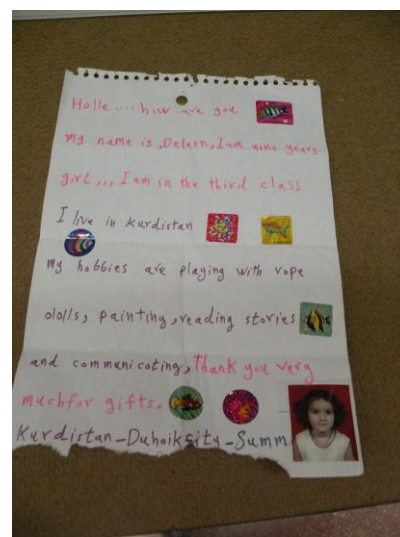 Holle .... how are you
my name is ,Deleen, I am nine years
girl ,,, I am in the third class
I live in Kurdistan
my hobbies are playing with rope
dolls, painting, reading stories
and communicoting, Thank you verg
muchfor gifts.
Kurdistan_Duhoiksity_Summ